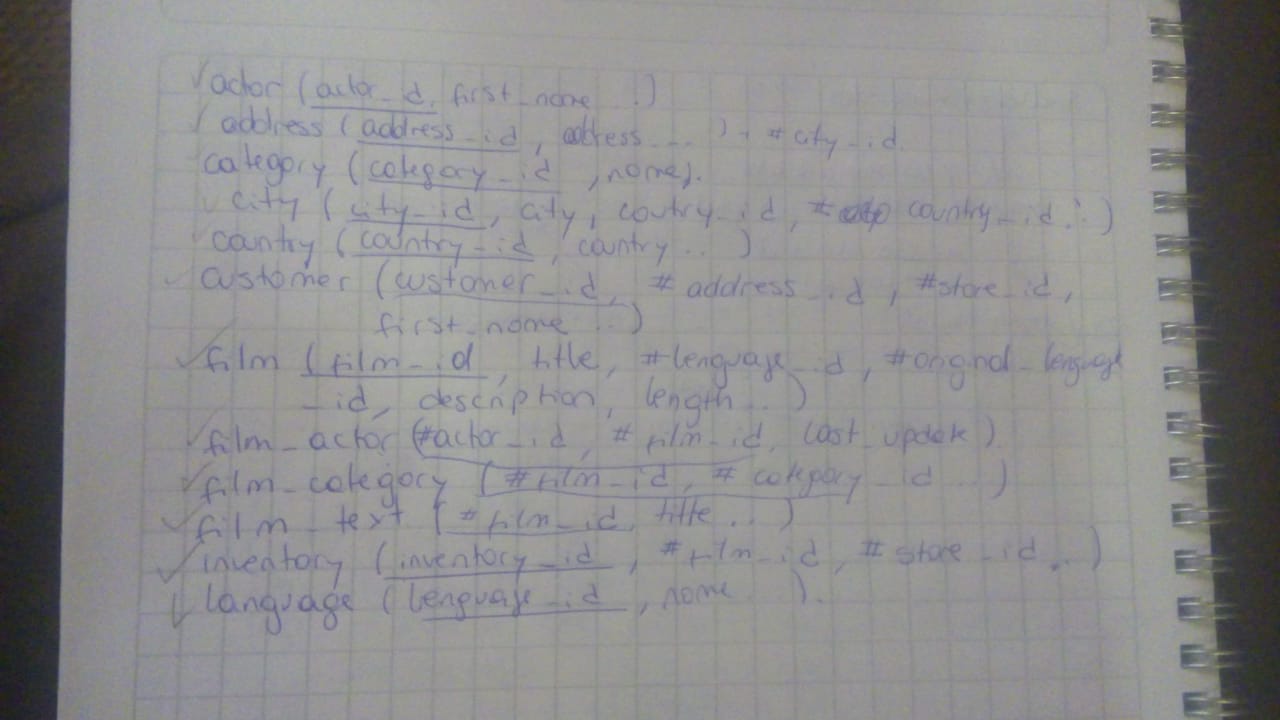 ✓ actor (actor_id, first_name ..)
✓ address (address_id, address....), #city_id.
category (category_id, name).
✓ city (city_id, city, coutry_id, # country_id..)
✓ country (country_id, country...)
✓ customer (customer_id, #address_id, #store_id,
first_name ...)
✓ film (film_id, title, #lenguaje_id, #original_lenguaje
_id, description, length...)
✓ film_actor (#actor_id, #film_id, last_update).
✓ film_category (#film_id, #category_id ...)
✓ film_text (#film_id, title...)
✓ inventory (inventory_id, #film_id, #store_id...)
✓ language (lenguaje_id, name ).